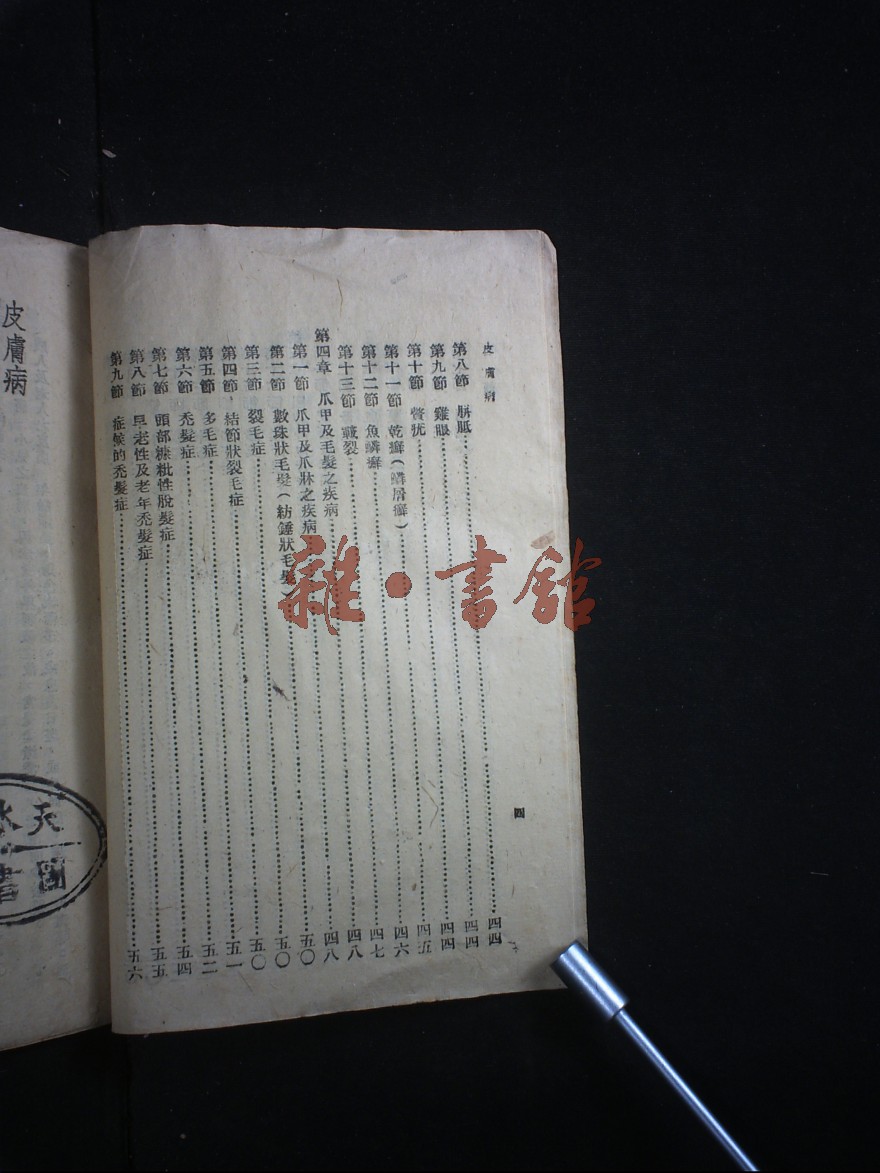 皮膚病
第八節 胼胝 四四
第九節 雞眼 四四
第十節 贅疣 四五
第十一節 乾癬（鱗屑癬） 四六
第十二節 魚鱗癬 四七
第十三節 皸裂 四八
第四章 爪甲及毛髮之疾病 四八
第一節 爪甲及爪牀之疾病 五〇
第二節 數珠狀毛髮（紡錘狀毛髮） 五〇
第三節 裂毛症 五〇
第四節 結節狀裂毛症 五一
第五節 多毛症 五二
第六節 禿髮症 五四
第七節 頭部糠粃性脫髮症 五五
第八節 早老性及老年禿髮症
第九節 症候的禿髮症 五六
四
皮膚病
雜·書館
天水
圖書